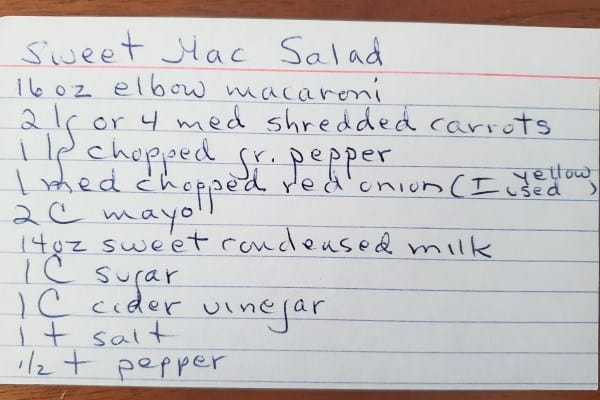 Sweet Mac Salad
16 oz elbow macaroni
2 lg or 4 med shredded carrots
1 lg chopped gr. pepper
1 med chopped red onion (I used yellow)
2 C mayo
14oz sweet condensed milk
1 C sugar
1 C cider vinegar
1 t salt
1/2 t pepper